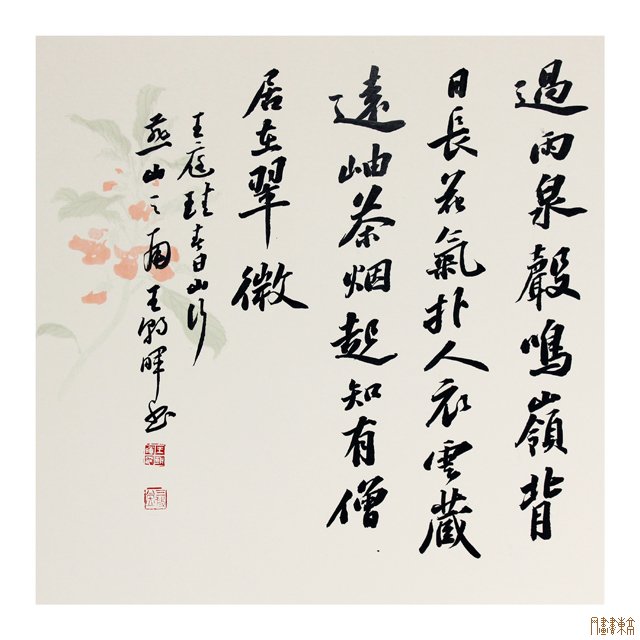 過雨泉聲鳴嶺背
日長花氣扑人衣雲藏
遠岫茶烟起知有僧
居在翠微
王庭珪春日山行
燕山之南王朝暉書